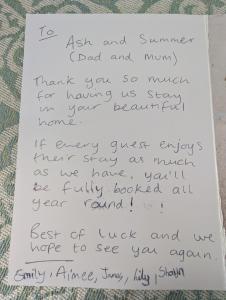 To
Ash and Summer
(Dad and Mum)
Thank you so much
for having us stay
in your beautiful
home.
If every guest enjoys
their stay as much
as we have, you'll
be fully booked all
year round!
Best of luck and we
hope to see you again.
Emily, Aimee, James, Lily,